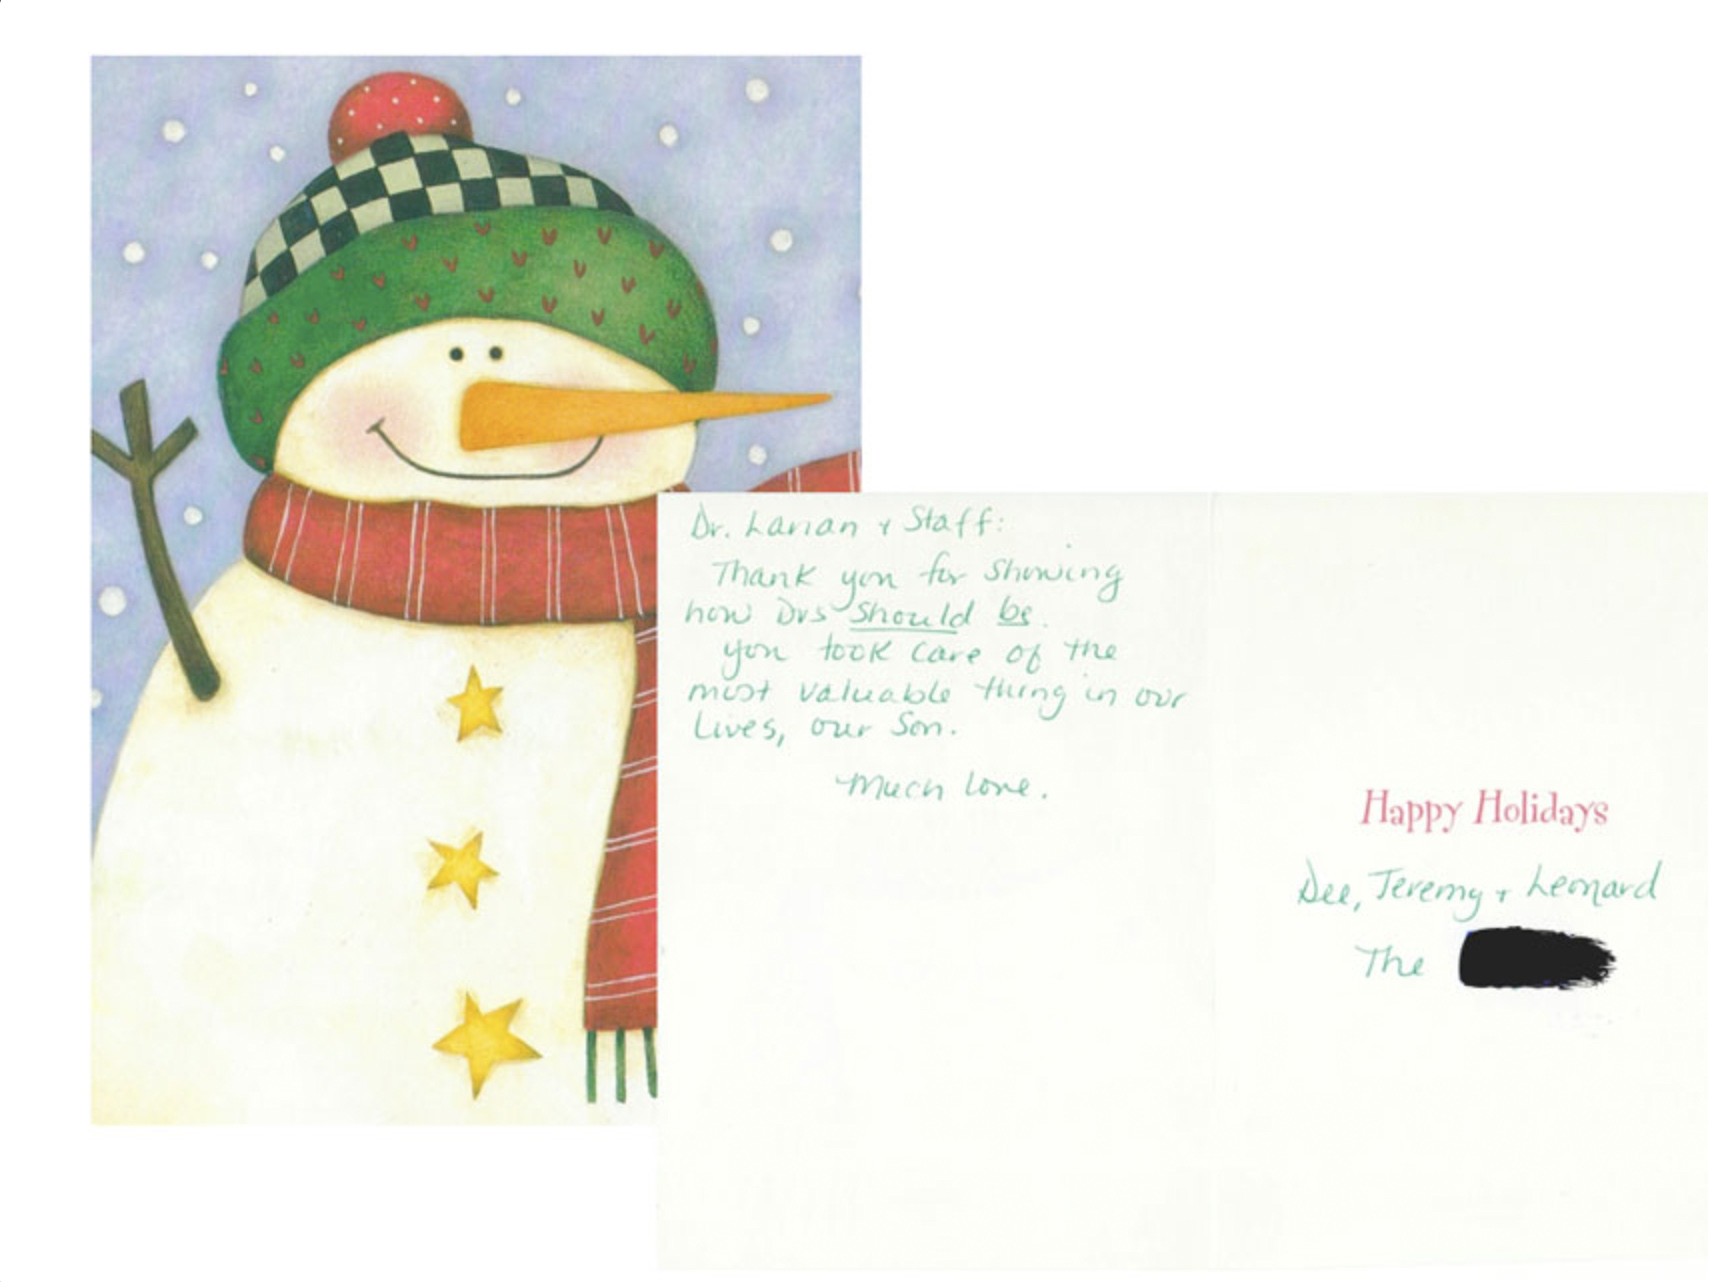 Dr. Larian + Staff:
Thank you for showing
how Drs should be.
you took care of the
most valuable thing in our
Lives, our Son.
Much love.
Happy Holidays
Dee, Jeremy + Leonard
The